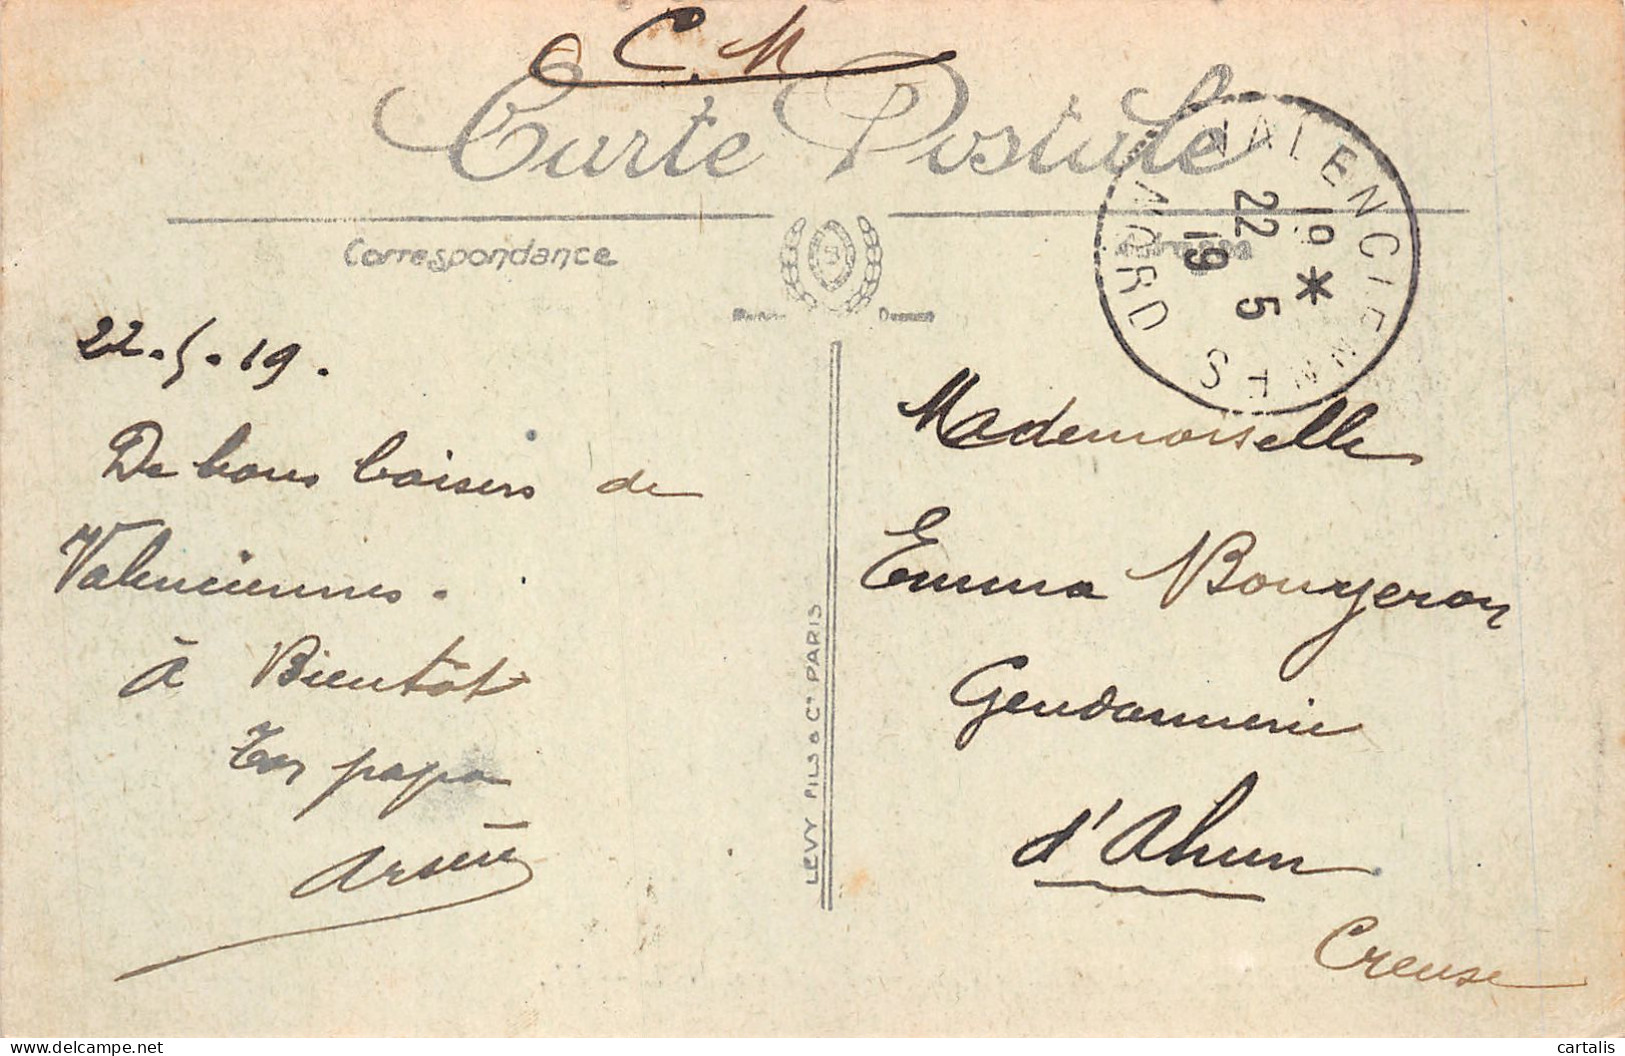 C.M
Carte Postale
Correspondance
Adresse
VALENCIENNES
NORD
19 *
22 5
19
22.5.19.
De bons baisers de
Valenciennes.
à Bientôt
Ton papa
Arsène
LEVY FILS & Cie PARIS
Mademoiselle
Emma Bougeron
Gendarmerie
d'Ahun
Creuse
cartalis
delcampe.net